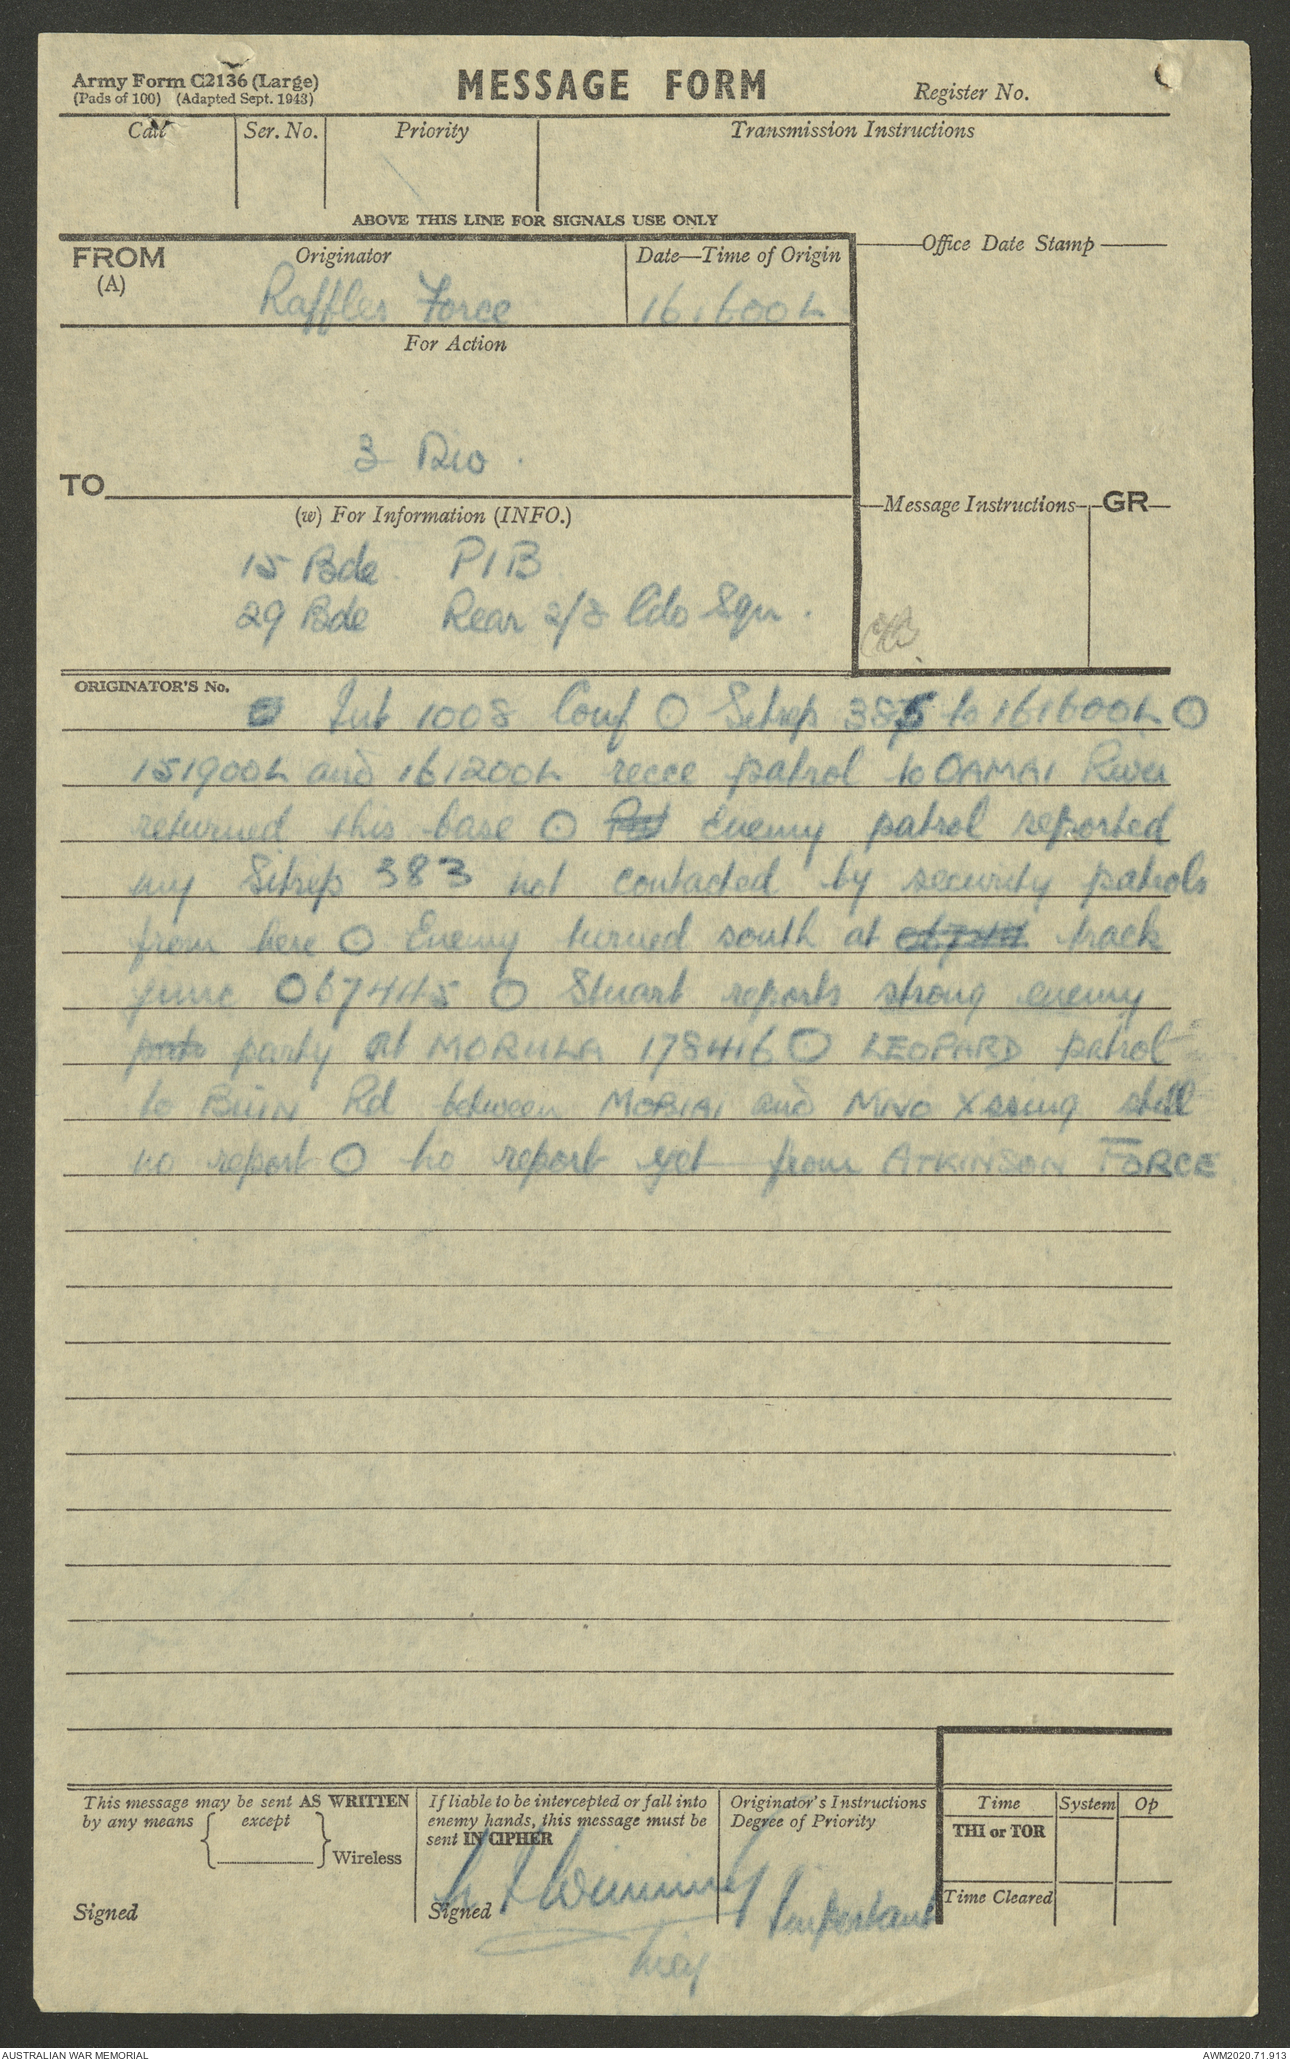 Army Form C2136 (Large)
(Pads of 100) (Adapted Sept. 1943)
MESSAGE FORM
Register No.
Call
Ser. No.
Priority
Transmission Instructions
ABOVE THIS LINE FOR SIGNALS USE ONLY
FROM
(A)
Originator
Raffles Force
Date—Time of Origin
161600L
Office Date Stamp
For Action
3 Div
TO
(w) For Information (INFO.)
15 Bde PIB
29 Bde Rear 2/8 Cdo Sqn.
Message Instructions
GR
ORIGINATOR'S No.
Int 1008 Conf O Sitrep 385 to 161600L O
151900L and 161200L recce patrol to OAMAI River
returned this base O Enemy patrol reported
my Sitrep 383 not contacted by security patrols
from here O Enemy turned south at track
junc 067445 O Stuart reports strong enemy
party at MORULA 178416 O LEOPARD patrol
to BUIN Rd between MOBIAI and MIVO Xssing still
no report O no report yet from ATKINSON FORCE
This message may be sent AS WRITTEN
by any means except
Wireless
Signed
If liable to be intercepted or fall into
enemy hands, this message must be
sent IN CIPHER
Signed
Originator's Instructions
Degree of Priority
Important
Time
System
Op
THI or TOR
Time Cleared
AUSTRALIAN WAR MEMORIAL
AWM2020.71.913